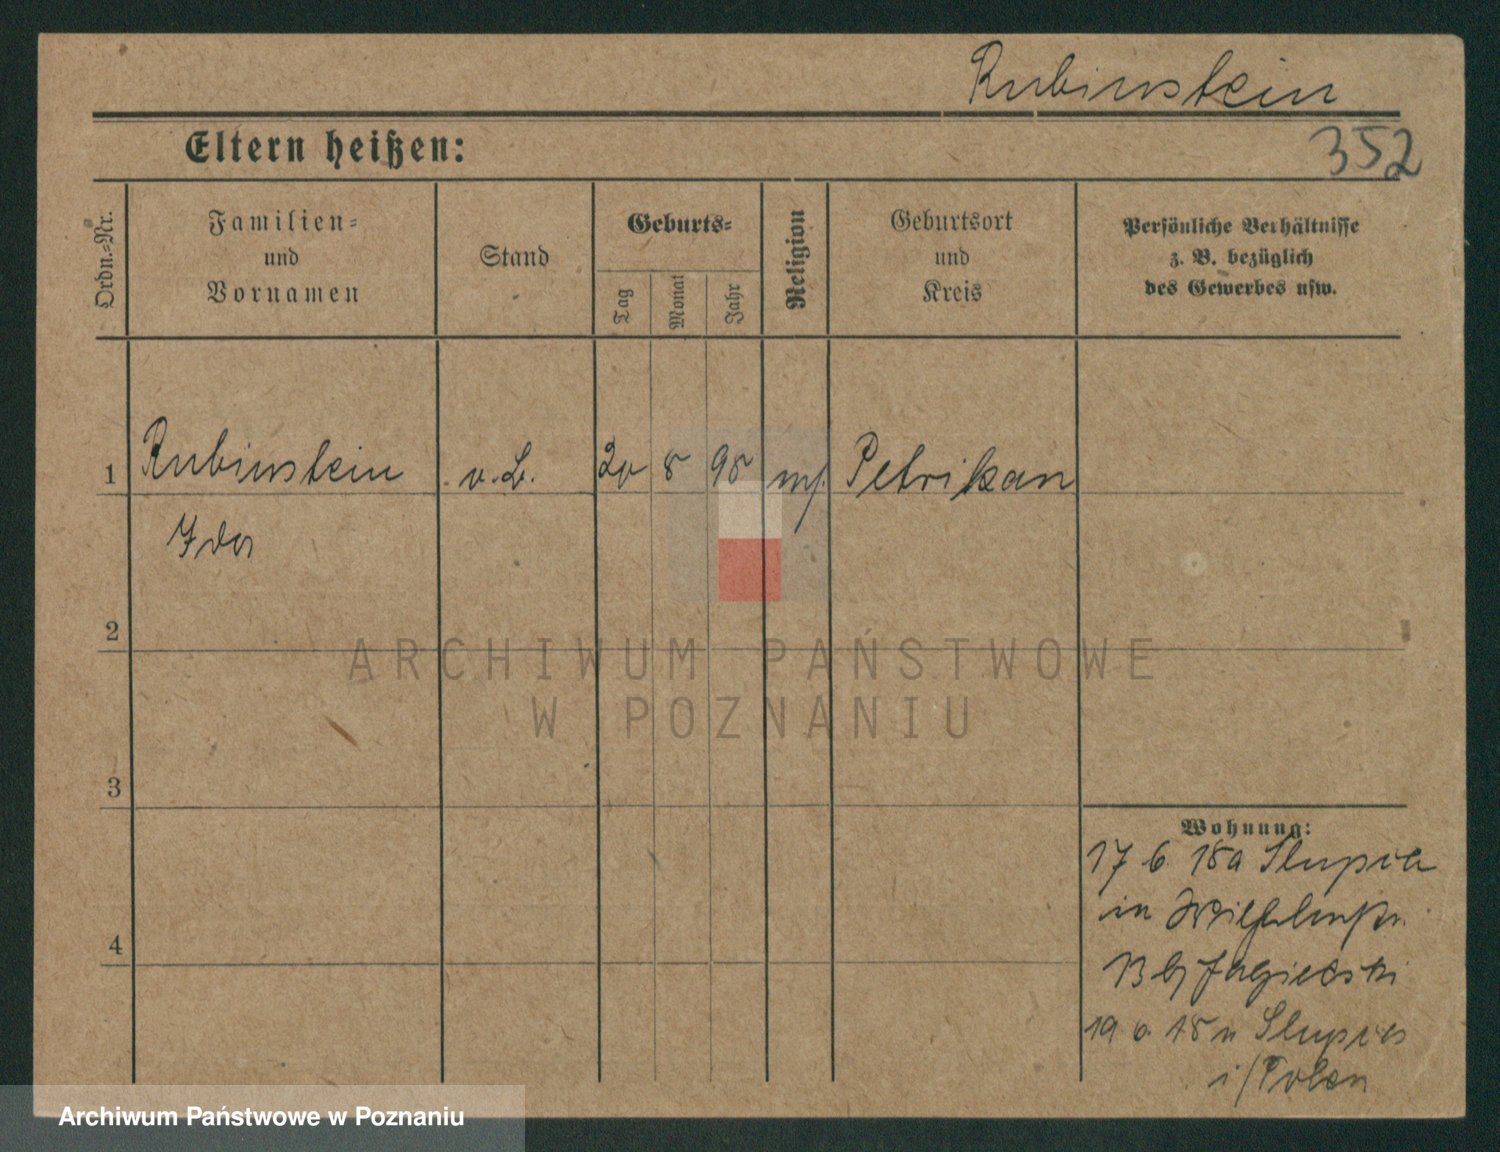 Rubinstein
352
Eltern heißen:
Ordn.-Nr.
Familien-
und
Vornamen
Stand
Geburts-
Tag
Monat
Jahr
Religion
Geburtsort
und
Kreis
Persönliche Verhältnisse
z. B. bezüglich
des Gewerbes usw.
1 Rubinstein o. B. 20 8 98 mos. Petrikau
Ida
2
3
4
Wohnung:
17 6 18 a Slupia
in Wilhelmstr.
13 b/ Jagielski
19 6 18 n Slupia
i/Polen
ARCHIWUM PAŃSTWOWE
W POZNANIU
Archiwum Państwowe w Poznaniu